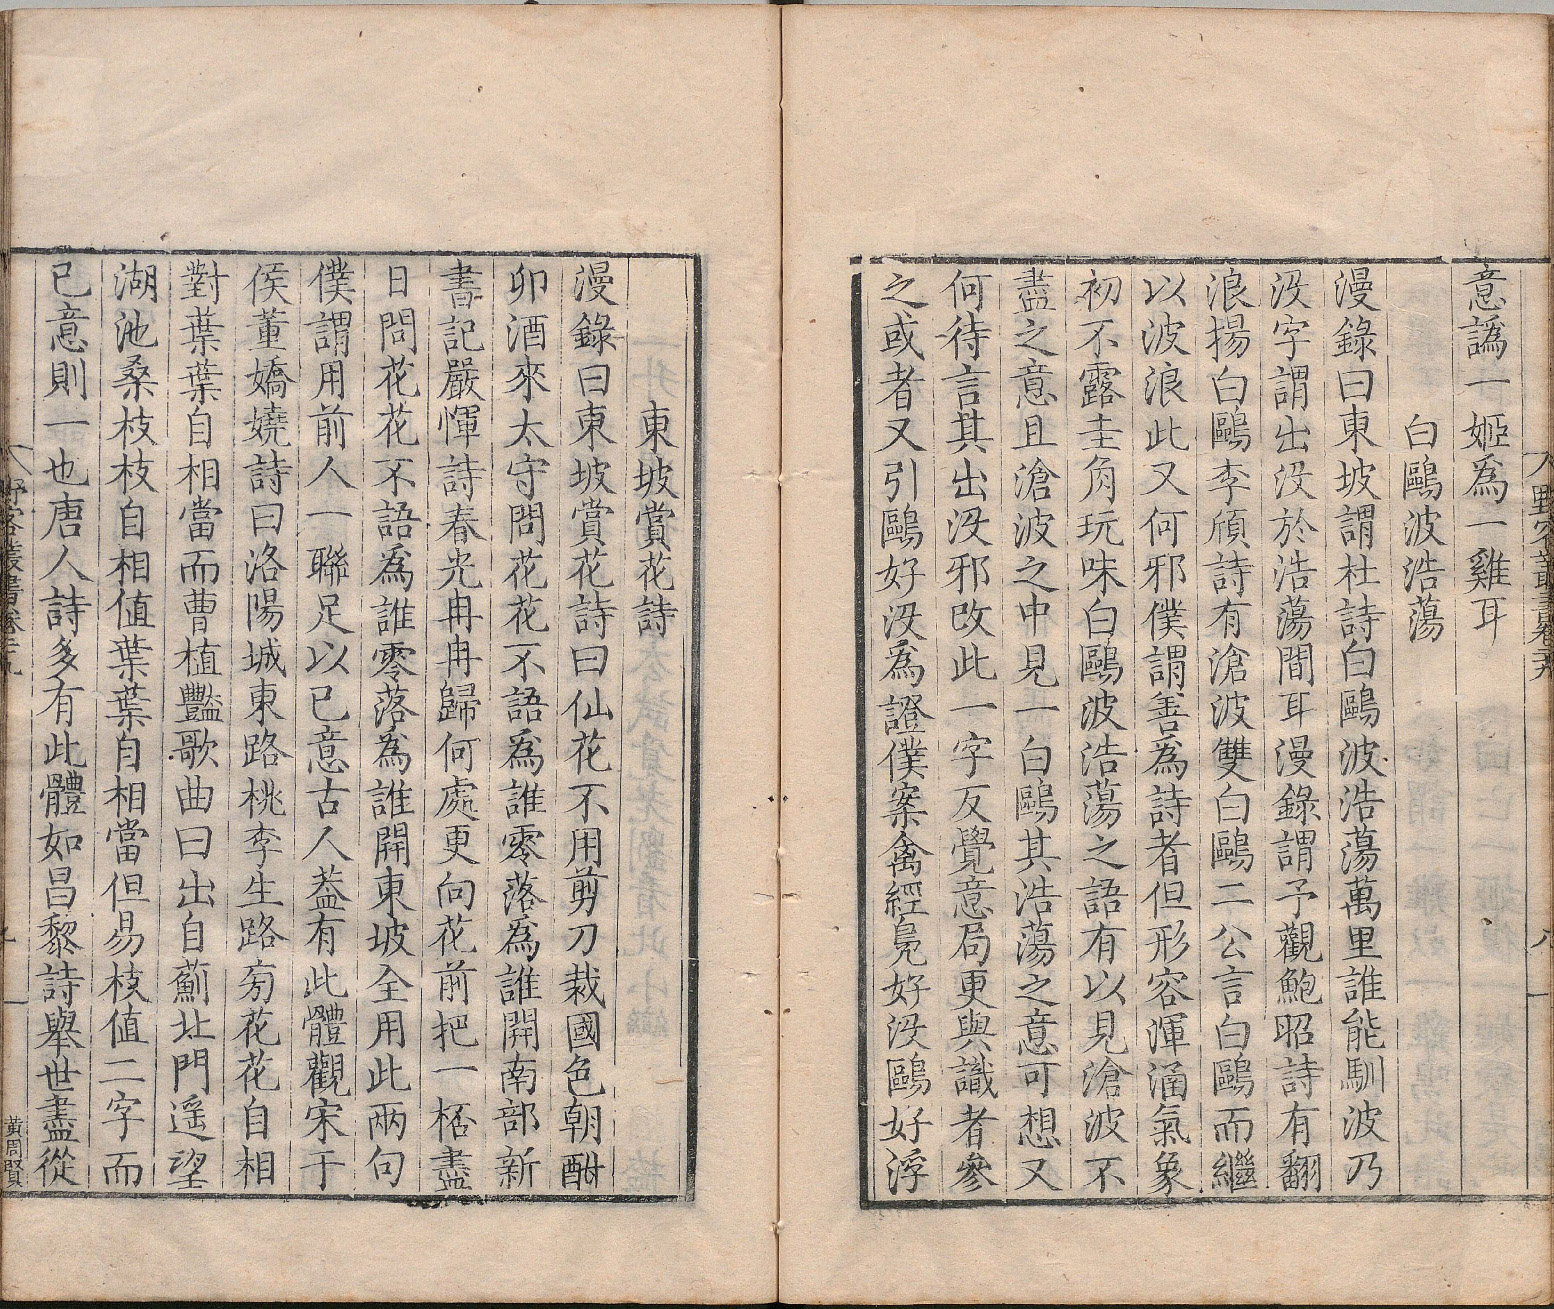 意譌一姬爲一雞耳
白鷗波浩蕩
漫錄曰東坡謂杜詩白鷗波浩蕩萬里誰能馴波乃
沒字謂出沒於浩蕩間耳漫錄謂予觀鮑昭詩有翻
浪揚白鷗李頎詩有滄波雙白鷗二公言白鷗而繼
以波浪此又何邪僕謂善爲詩者但形容渾涵氣象
初不露圭角玩味白鷗波浩蕩之語有以見滄波不
盡之意且滄波之中見一白鷗其浩蕩之意可想又
何待言其出沒邪改此一字反覺意局更與識者參
之或者又引鷗好沒爲證僕案禽經鳧好沒鷗好浮
東坡賞花詩
漫錄曰東坡賞花詩曰仙花不用剪刀裁國色朝酣
卯酒來太守問花花不語爲誰零落爲誰開南部新
書記嚴惲詩春光冉冉歸何處更向花前把一桮盡
日問花花不語爲誰零落爲誰開東坡全用此兩句
僕謂用前人一聯足以已意古人葢有此體觀宋于
侯董嬌嬈詩曰洛陽城東路桃李生路旁花花自相
對葉葉自相當而曹植豔歌曲曰出自薊北門遥望
湖池桑枝枝自相值葉葉自相當但易枝值二字而
已意則一也唐人詩多有此體如昌黎詩舉世盡從
野客叢書卷
八
黃周賢